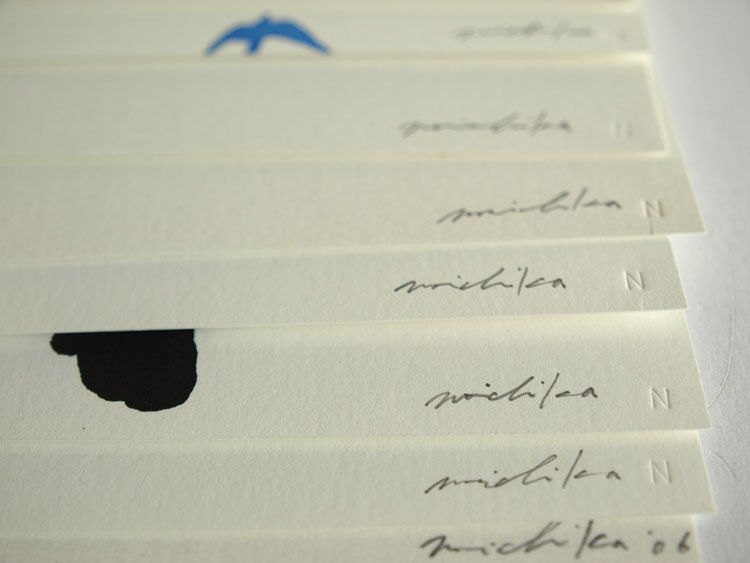 michika
michika N
michika N
michika N
michika N
michika N
michika '06